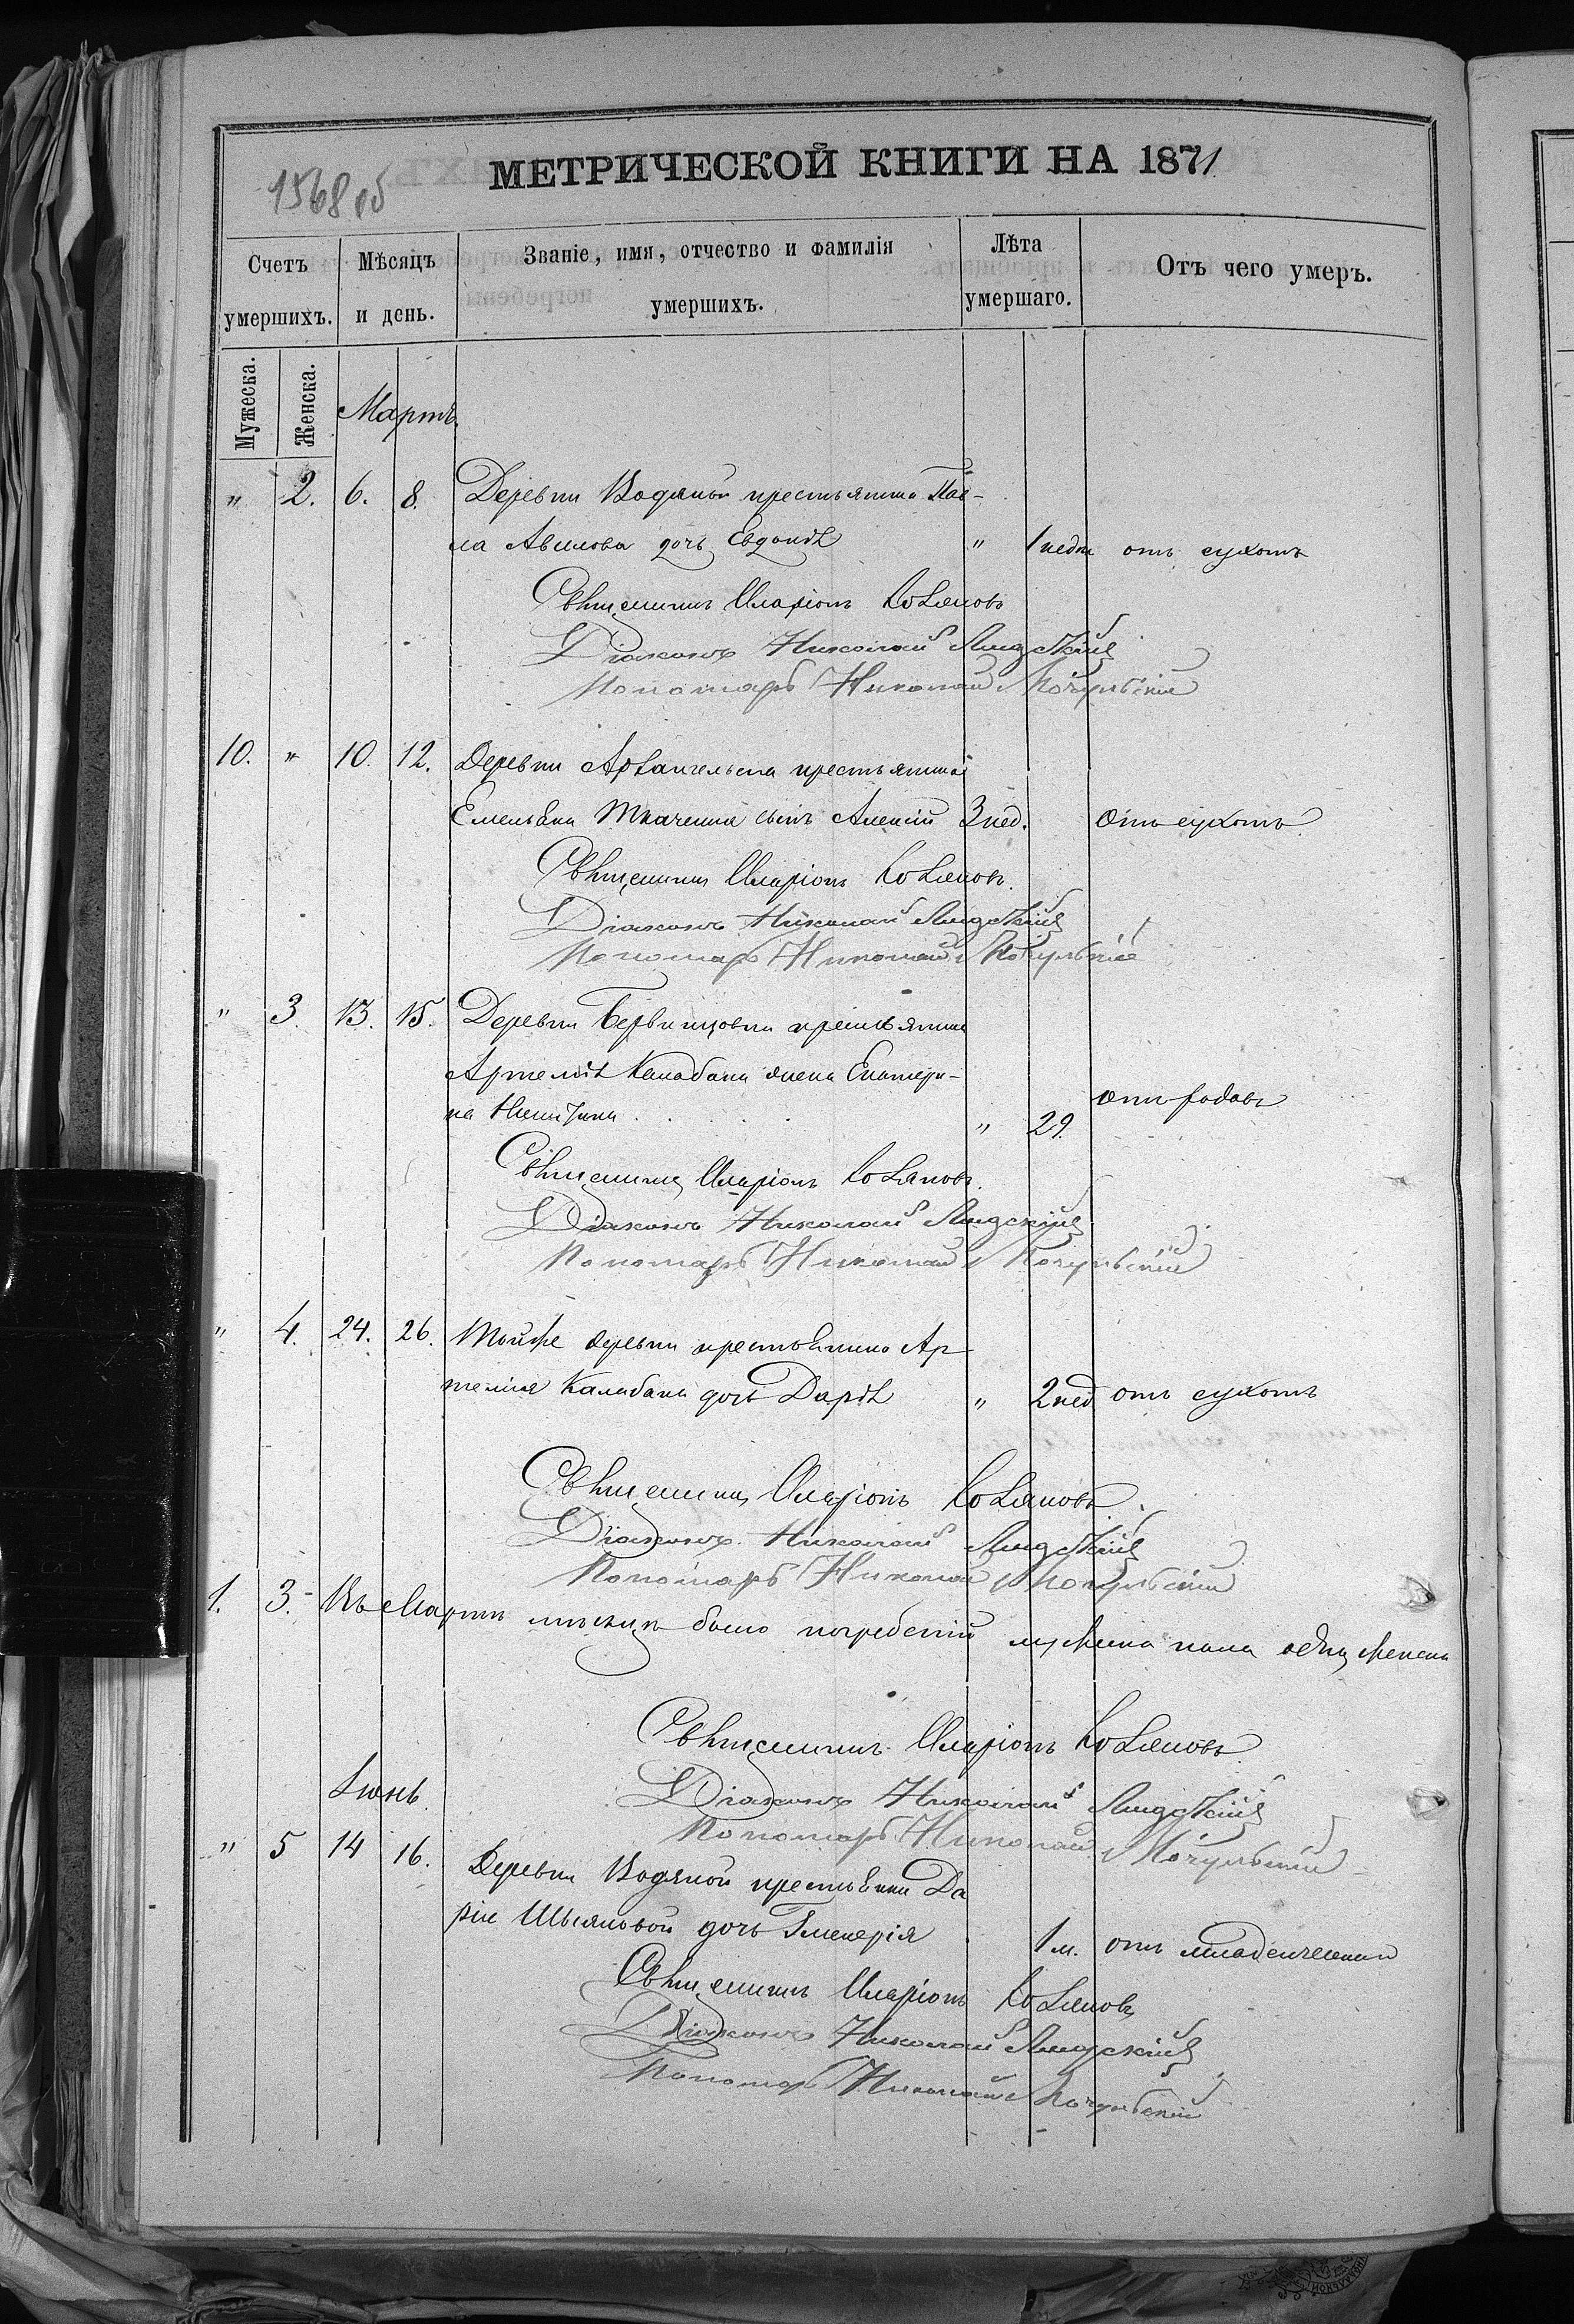 1568 об
МЕТРИЧЕСКОЙ КНИГИ НА 1871
Счетъ умершихъ.
Мѣсяцъ и день.
Званіе, имя, отчество и фамилія умершихъ.
Лѣта умершаго.
Отъ чего умеръ.
Мужеска.
Женска.
Мартъ.
" 2. 6. 8. Деревни Водяной крестьянина Пав-
ла Авилова дочь Евдокія " 1 недѣ отъ сухотъ
Священникъ Иларіонъ
Діаконъ Николай
Пономарь Николай
10. " 10. 12. Деревни Архангельска крестьянина
Емельяна Ткаченка сынъ Алексій 3 нед. отъ сухотъ
Священникъ Иларіонъ
Діаконъ Николай
Пономарь Николай
" 3. 13. 15. Деревни крестьянина
Артемія Калабана жена Екатери-
на " 29. отъ родовъ
Священникъ Иларіонъ
Діаконъ Николай
Пономарь Николай
" 4. 24. 26. Тойже деревни крестьянина Ар
темія Калабана дочь Дарія " 2 нед отъ сухотъ
Священникъ Иларіонъ
Діаконъ Николай
Пономарь Николай
1. 3. Въ Мартѣ мѣсяцѣ было погребеній мужеска пола женска
Священникъ Иларіонъ
Діаконъ Николай
Іюнь.
Пономарь Николай
" 5 14 16. Деревни Водяной крестьянки Да
ріи дочь Гликерія 1 м. отъ младенческой
Священникъ Иларіонъ
Діаконъ Николай
Пономарь Николай